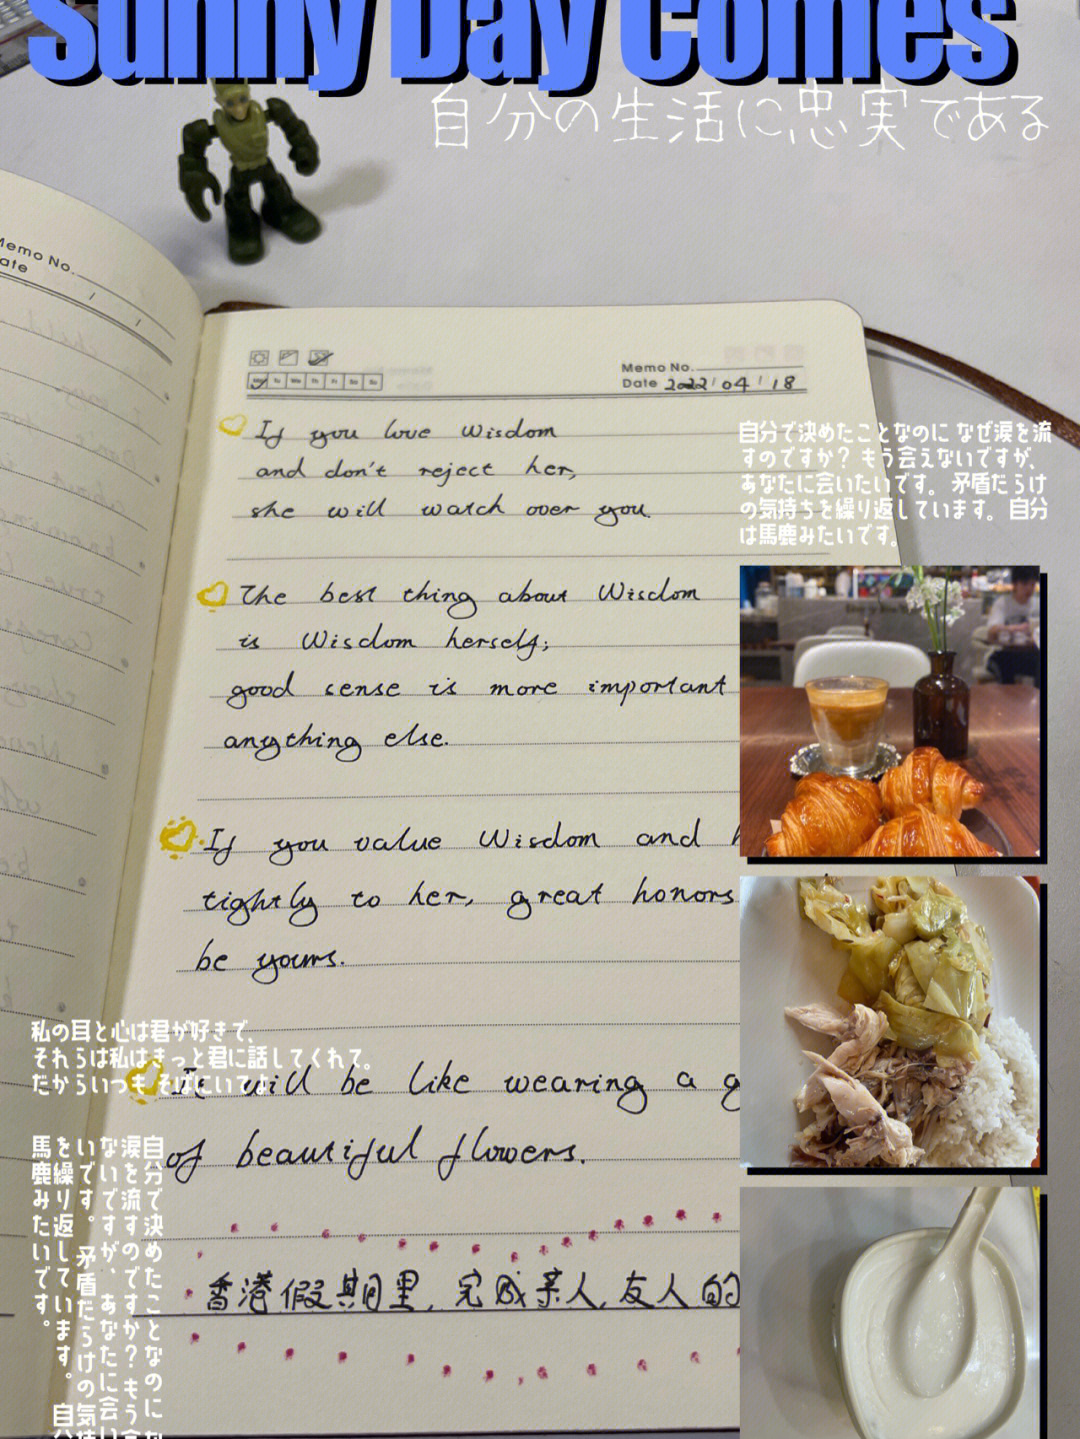 Sunny Day Comes
自分の生活に忠実である
Memo No.
Date
Memo No.
Date 2022/04/18
Tu We Th Fr Sa Su
If you love Wisdom
and don't reject her,
she will watch over you.
自分で決めたことなのに なぜ涙を流
すのですか? もう会えないですが、
あなたに会いたいです。矛盾だらけ
の気持ちを繰り返しています。自分
は馬鹿みたいです。
The best thing about Wisdom
is Wisdom herself;
good sense is more important
anything else.
If you value Wisdom and
tightly to her, great honors
be yours.
私の耳と心は君が好きで、
それらは私はきっと君に話してくれて。
だからいつもそばにいて
It will be like wearing a g
of beautiful flowers.
自分で決めたことなのにな
涙を流すのですか?もう会
ないですが、あなたに会い
いです。矛盾だらけの気持
を繰り返しています。自分
馬鹿みたいです。
香港假期里,完成亲人,友人的